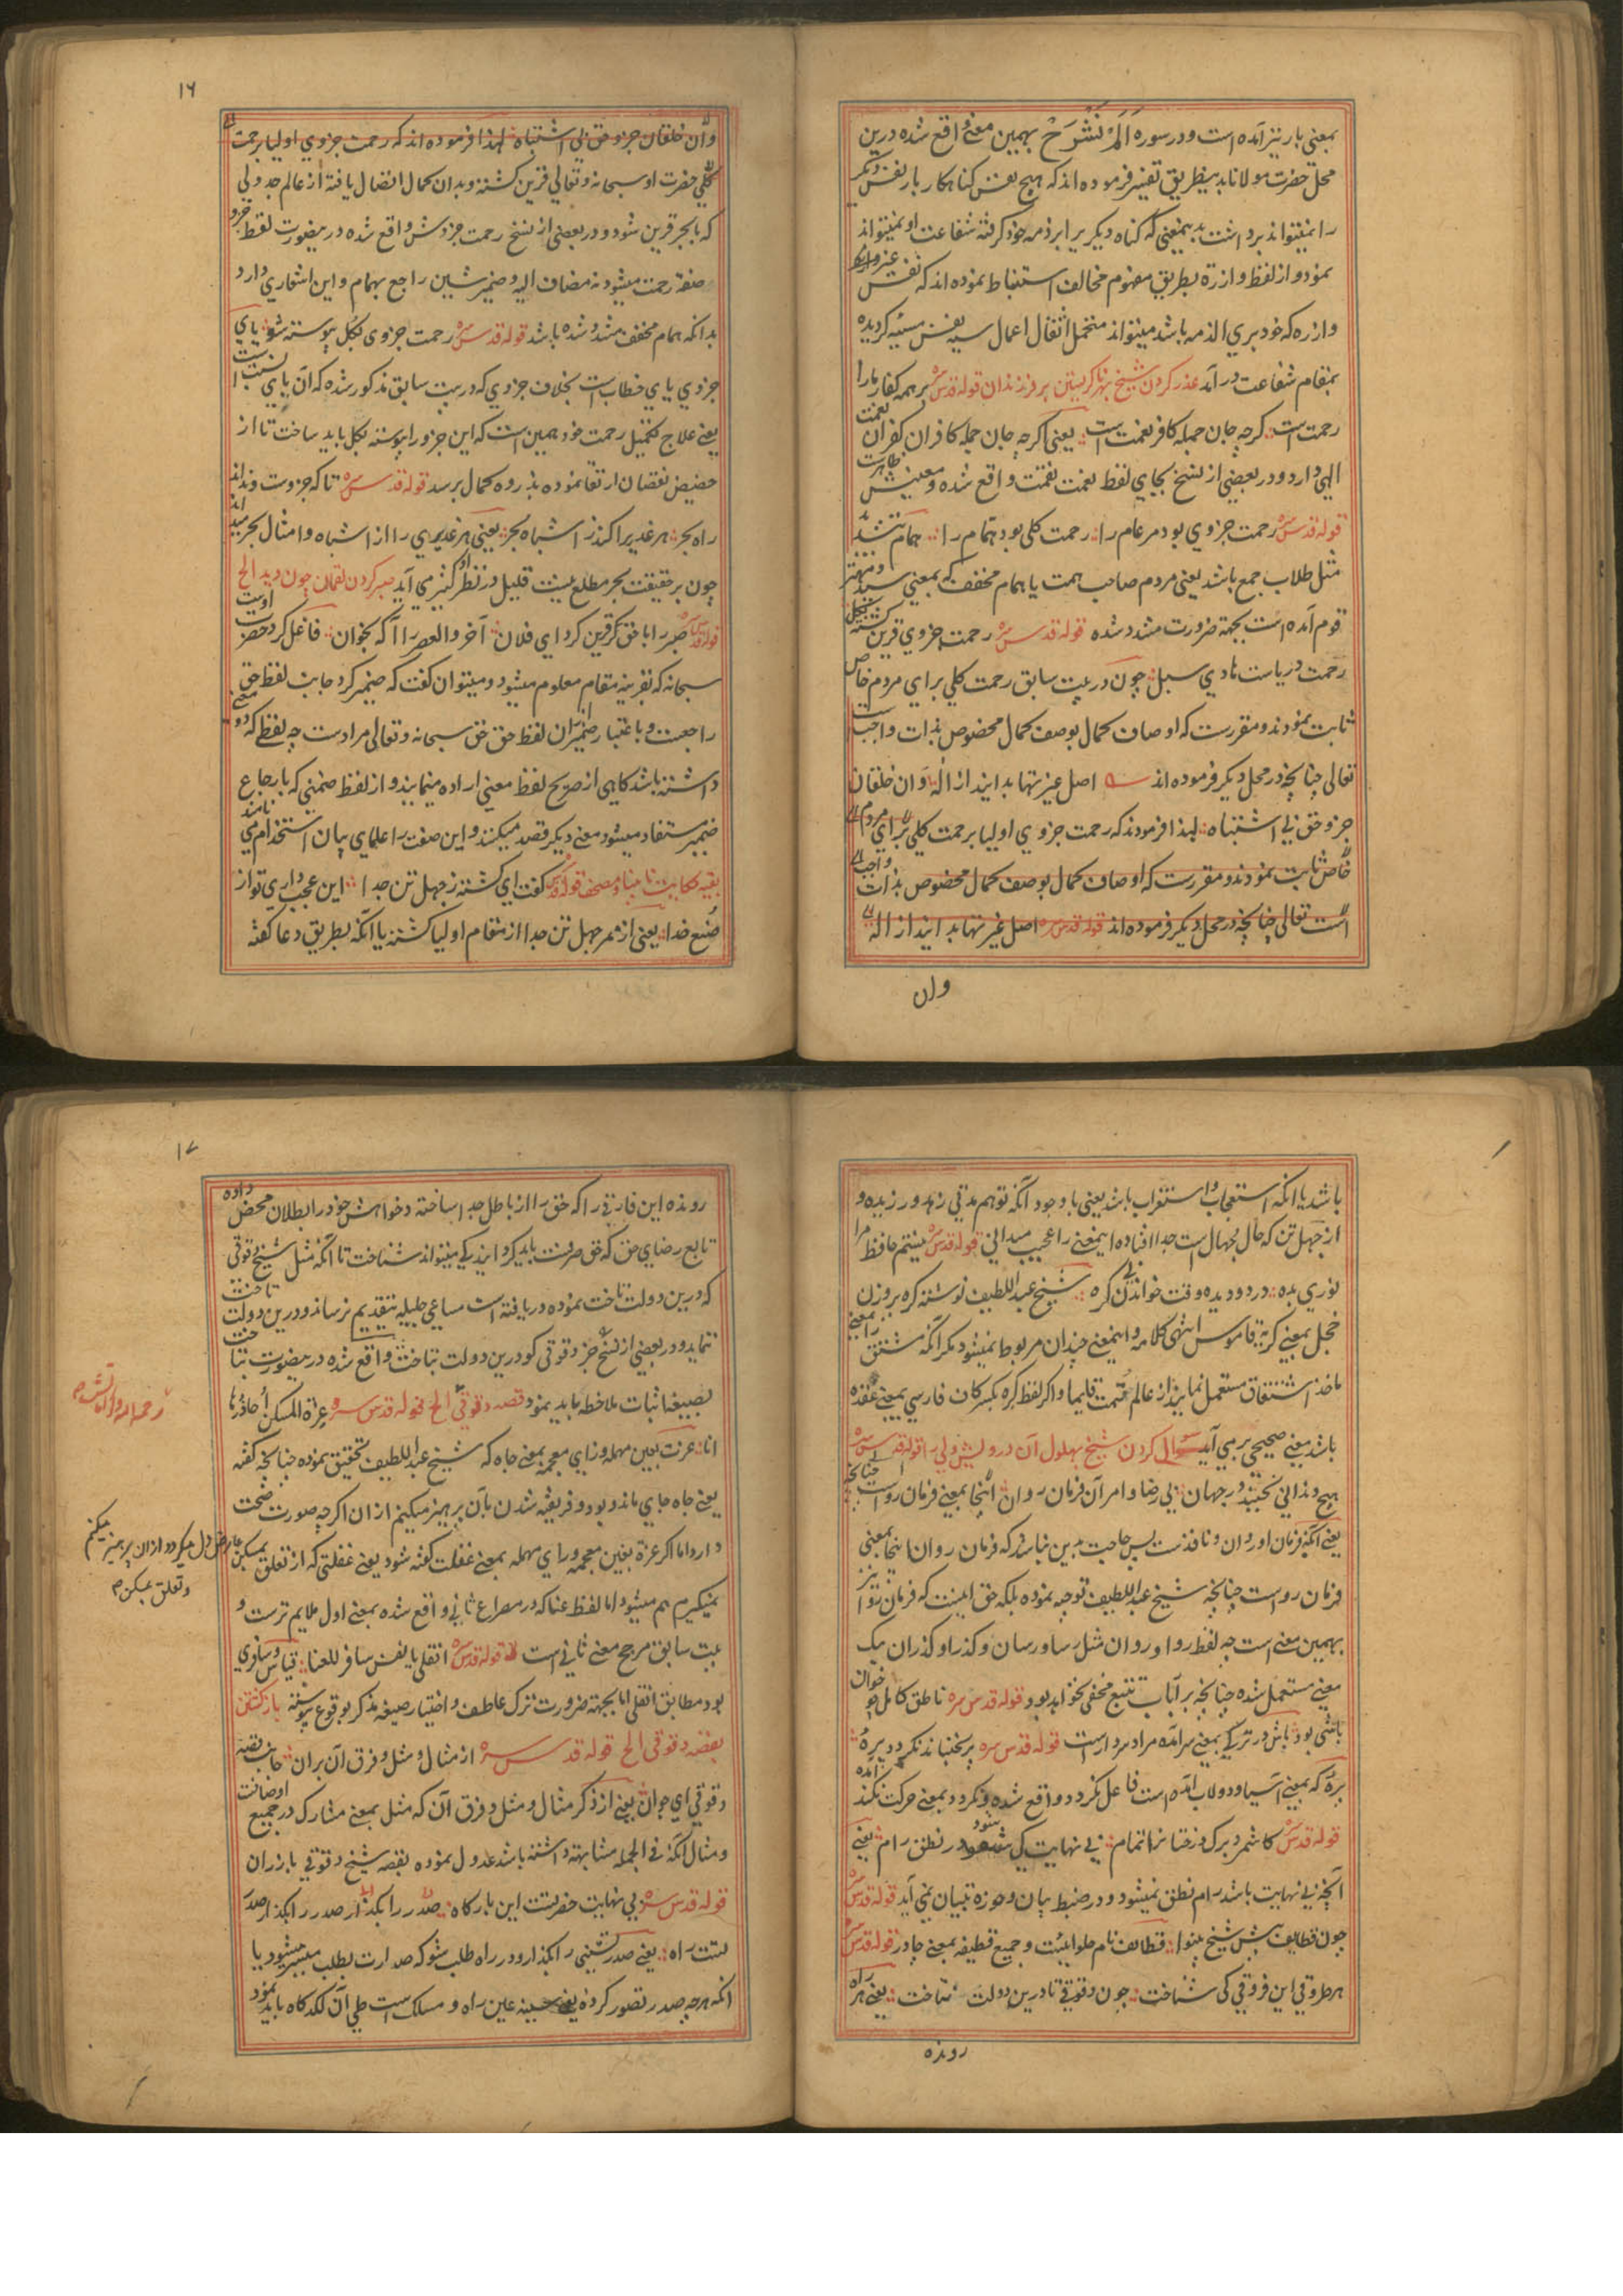 بمعنی بار نیز آمده است و در سوره اَلَمْ نَشْرَحْ بهمین معنی واقع شده درین
محل حضرت مولانا بدینطریق تفسیر فرموده اند که هیچ نفس کناهکار بار نفس دیکر
را نمیتواند برداشت بدینمعنی که کناه دیکری را بر ذمه خود کرفته شفاعت او نمیتواند
نمود و از لفظ وازرة بطریق مفهوم مخالف استنباط نموده اند که نفس غیر وازره
وازره که خود بری الذمه باشد میتواند متحمل اثقال اعمال سیه نفس مسیئه کردیده
بمقام شفاعت در آمد عذر کردن شیخ بهر ناکریستن بر فرزندان قوله قدس سره بر همه کفار ما را
رحمت است کرچه جان جمله کافر نعمت است یعنی اکرچه جان جمله کافران کفران نعمت
الهی دارد و در بعضی از نسخ بجای لفظ نعمت نقمت واقع شده و معنیش ظاهرست
قوله قدس سره رحمت جزوی بود مر عام را رحمت کلی بود همام را همام بتشدید
مثل طلاب جمع باشد یعنی مردم صاحب همت یا همام مخفف که بمعنی سید و مهتر
قوم آمده است بجهة ضرورت مشدد شده قوله قدس سره رحمت جزوی قرین کشته بکل
رحمت دریاست هادی سبل چون در بیت سابق رحمت کلی برای مردم خاص
ثابت نمودند و مقررست که اوصاف کمال بوصف کمال مخصوص بذات واجب ست
تعالی چنانچه در محل دیکر فرموده اند اصل غیرتها بدانید از اله وان خلقان
جزو حق بی اشتباه لهذا فرمودند که رحمت جزوی اولیا برحمت کلی برای مردم
خاص ثابت نمودند و مقررست که اوصاف کمال بوصف کمال مخصوص بذات واجب
است تعالی چنانچه در محل دیکر فرموده اند قوله قدس سره اصل غیرتها بدانید از اله
وان
۱۶
وان خلقان جزو حق بی اشتباه لهذا فرموده اند که رحمت جزوی اولیا برحمت
کلی حضرت او سبحانه و تعالی قرین کشته و بدان کمال اتصال یافته از عالم جدولی
که با بحر قرین شود و در بعضی از نسخ رحمت جزوش واقع شده درینصورت لفظ جزو
صفة رحمت میشود نه مضاف الیه و ضمیر شین راجع بهمام و این اشعاری دارد
بدانکه همام مخفف مشدد شده باشد قوله قدس سره رحمت جزوی بکل پیوسته شو یای
جزوی یای خطاب است بخلاف جزوی که در بیت سابق مذکور شده که آن یای نسبت است
یعنی علاج تکمیل رحمت خود همین است که این جزو را پیوسته بکل باید ساخت تا از
حضیض نقصان ارتقا نموده بذروه کمال برسد قوله قدس سره تا که جزوست و نداند
راه بحر هر غدیر را کند ز اشباه بحر یعنی هر غدیری را از اشباه و امثال بحر میداند
چون بر حقیقت بحر مطلع نیست قلیل در نظر او کثیر می آید صبر کردن لقمان چون دید الخ
قوله قدس سره صبر را با حق قرین کرد ای فلان آخر والعصر را آکه بخوان فاعل کرد حضرت اوست
سبحانه که بقرینه مقام معلوم میشود و میتوان کفت که ضمیر کرد جانب لفظ حق
راجعست و باعتبار ضمیران لفظ حق حق سبحانه و تعالی مرادست چه لفظی که دو معنی
داشته باشد کاهی از صریح لفظ معنی اراده مینمایند و از لفظ ضمنی که بارجاع
ضمیر مستفاد میشود معنی دیکر قصد میکنند و این صفت را علمای بیان استخدام می نامند
بقیه حکایت نابینا و مصحف قوله قدس کفت ای کشته ز جهل تن جدا این عجب داری تو از
صنع خدا یعنی از مر جهل تن جدا از مقام اولیا کشته یا آنکه بطریق دعا کفته
باشد یا آنکه استعجاب و استغراب باشد یعنی با وجود آنکه تو هم مدتی زهد ورزیده و
از جهل تن که حال جهال است جدا افتاده اینمعنی را عجیب میدانی قوله قدس سره نیستم حافظ مرا
نوری بده در دو دیده وقت خواندن بی کره شیخ عبد اللطیف نوشته کره بر وزن
خجل بمعنی کریه قاموس انتهی کلامه و اینمعنی چندان مربوط نمیشود مکر آنکه مشتق را بمعنی
ماخذ اشتقاق مستعمل نمایند از عالم قمت قایما و اکر لفظ کره بکسر کاف فارسی بمعنی عقده
باشد معنی صحیحی بر می آید سوال کردن شیخ بهلول آن درویش ولی را قوله قدس سره
هیچ دندانی نجنبد در جهان بی رضا و امر آن فرمان روان اینجا بمعنی فرمان رواست چنانچه
یعنی آنکه فرمان او روان و نافذست پس حاجت بدین نباشد که فرمان روان اینجا بمعنی
فرمان رواست چنانچه شیخ عبد اللطیف توجیه نموده بلکه حق اینست که فرمان روا نیز
بهمین معنی است چه لفظ روا و روان مثل رسا و رسان و کذرا و کذران بیک
معنی مستعمل شده چنانچه بر ارباب تتبع مخفی نخواهد بود قوله قدس سره ناطق کامل چو خوان
باشی بود باش در ترکی بمعنی سر آمده مراد سردارست قوله قدس سره پر نجنباند نکردد پرهٔ
پرهٔ که بمعنی آسیا و دولاب آمده است فاعل نکردد واقع شده و نکردد بمعنی حرکت نکند
قوله قدس سره کاشمرد برک درختان را تمام بی نهایت کی شود در نطق رام یعنی
آنچه بی نهایت باشد رام نطق نمیشود و در ضبط بیان و حوزه تبیان نمی آید قوله قدس سره
چون قطایف پیش شیخ بینوا قطائف نام حلوائیست و جمیع قطیفه بمعنی چادر قوله قدس سره
هر طروقی این فروقی کی شناخت چون دقوقی تا درین دولت نتاخت یعنی هر راه
رونده
۱۷
رونده این فارقی را که حق را از باطل جدا ساخته و خواهش خود را بطلان محض داده
تابع رضای حق که حق صرفست باید کردانید کی میتواند شناخت تا آنکه مثل شیخ دقوقی
که درین دولت تاخت نموده دریافته است مساعی جلیله بتقدیم نرساند و درین دولت تاخت
ننماید و در بعضی از نسخ جز دقوقی کو درین دولت بتاخت واقع شده درینصورت بتاخت
بصیغه اثبات ملاحظه باید نمود قصه دقوقی الخ قوله قدس سره عزة المسکن احاذرها
انا عزت بعین مهمله و زای معجمه بمعنی جاه که شیخ عبد اللطیف تحقیق نموده چنانچه کفته
یعنی جاه جای ماند و بود و فریفته شدن بآن پرهیز میکنم از ان اکرچه صورت صحت
دارد اما اکر غرة بغین معجمه و رای مهمله بمعنی غفلت کفته شود یعنی غفلتی که از تعلق بمسکن عارض دل میکردد از ان پرهیز میکنم
و تعلق بمسکن
نمیکیرم هم میشود اما لفظ عنا که در مصراع ثانی واقع شده بمعنی اول ملایم ترست و
بیت سابق مرجح معنی ثانی است قوله قدس سره انقلی یا نفس سافر للعنا قیاس و سافری
بود مطابق انقلی اما بجهة ضرورت ترک عاطف و اختیار صیغه مذکر بوقوع پیوسته بازکشتن
بقصه دقوقی الخ قوله قدس سره از مثال و مثل و فرق آن بران جانب قصه
دقوقی ای جوان یعنی از ذکر مثال و مثل و فرق آن که مثل بمعنی مشارک در جمیع اوصافست
و مثال آنکه فی الجمله مشابهة داشته باشد عدول نموده بقصه شیخ دقوقی باز ران
قوله قدس سره بی نهایت حضرتست این بارکاه صدر را بکذار صدر را بکذار صدر
تست راه یعنی صدر نشینی را بکذار و در راه طلب شو که صدارت بطلب میسر میشود یا
آنکه هر چه صدر تصور کردهٔ عین راه و مسلک است طی آن لکدکاه باید نمود